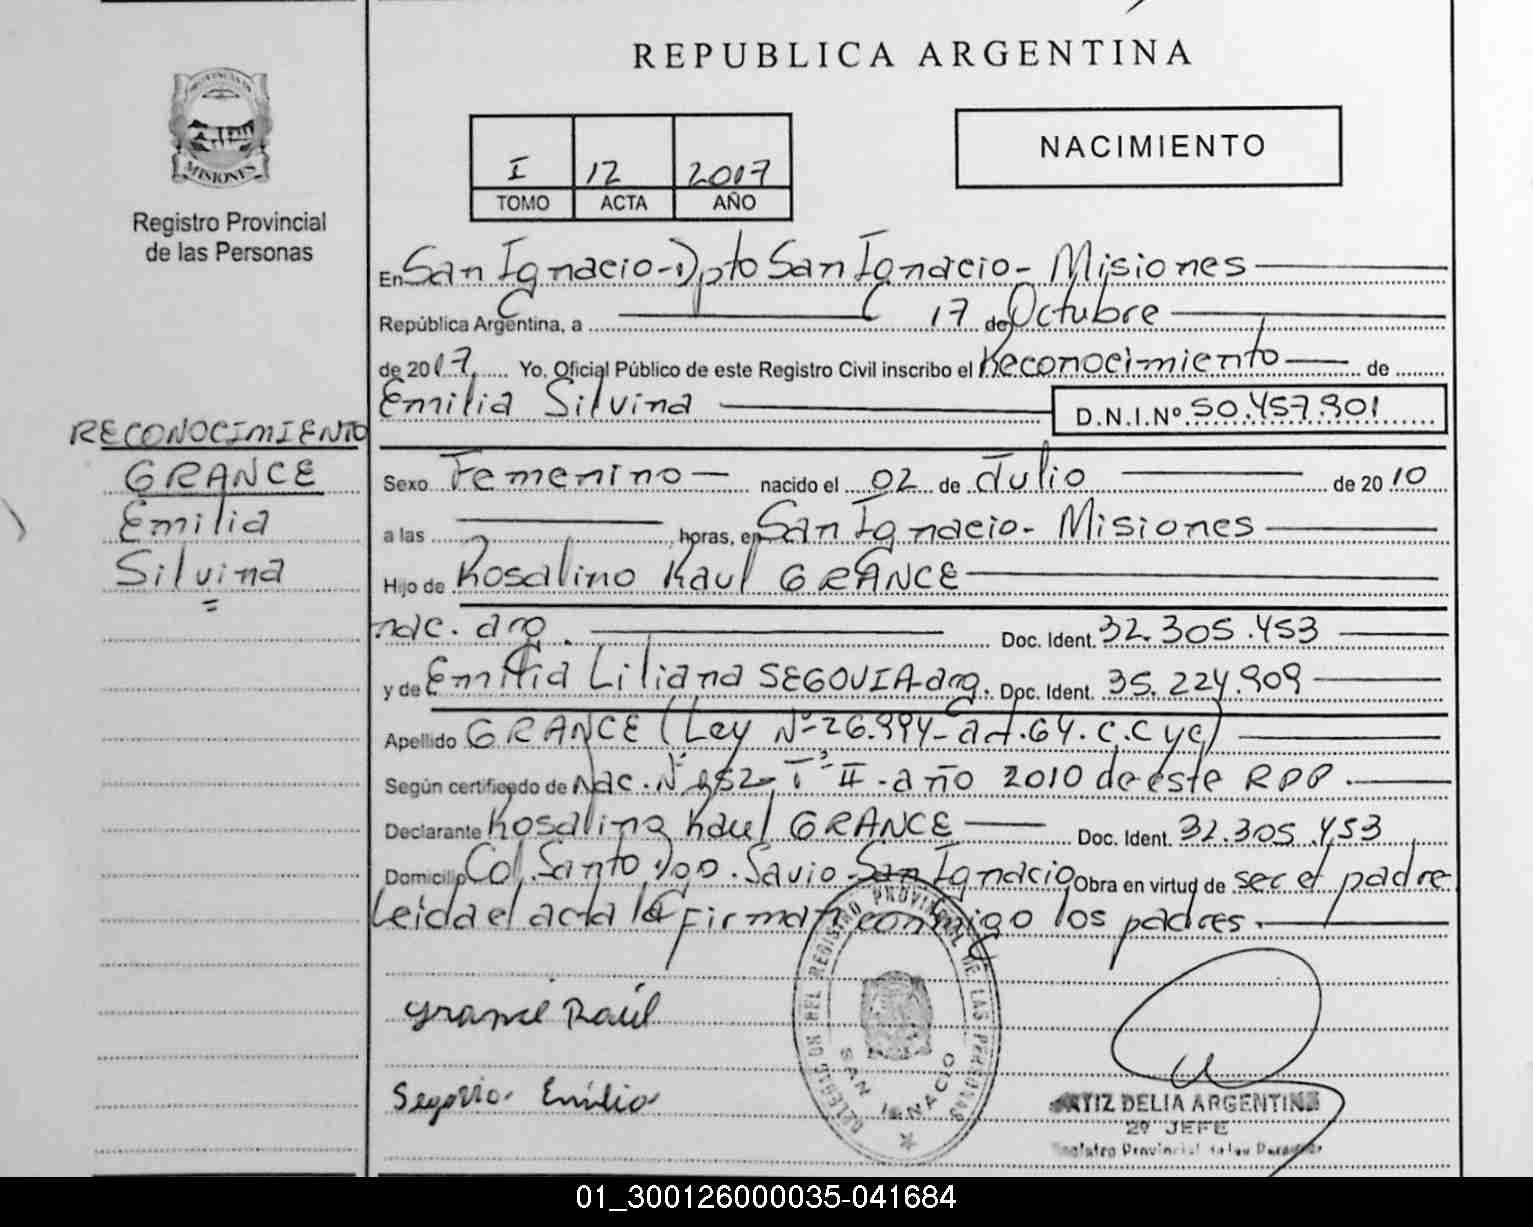 REPUBLICA ARGENTINA
PROVINCIA DE
MISIONES
Registro Provincial
de las Personas
I 12 2017
TOMO ACTA AÑO
NACIMIENTO
En San Ignacio - Dpto San Ignacio - Misiones
República Argentina, a 17 de Octubre
de 2017. Yo, Oficial Público de este Registro Civil inscribo el Reconocimiento de
Emilia Silvina D.N.I.Nº 50.457.901
RECONOCIMIENTO
GRANCE
Emilia
Silvina
Sexo Femenino nacido el 02 de Julio de 2010
a las horas, en San Ignacio - Misiones
Hijo de Rosalino Raul GRANCE
nac. arg. Doc. Ident. 32.305.453
y de Emilia Liliana SEGOVIA - arg. Doc. Ident. 35.224.909
Apellido GRANCE (Ley Nº 26.994 - art. 64. C.C yC)
Según certificado de Nac. Nº 652 - Tº II - año 2010 de este RPP.
Declarante Rosalino Raul GRANCE Doc. Ident. 32.305.453
Domicilio Col. Santo Dgo. Savio - San Ignacio Obra en virtud de ser el padre
Leida el acta la firman conmigo los padres.
Grance Raúl
Segovia Emilia
DELEGACION DEL REGISTRO PROVINCIAL DE LAS PERSONAS
SAN IGNACIO
DELIA ARGENTINA
2º JEFE
Registro Provincial de las Personas
01_300126000035-041684